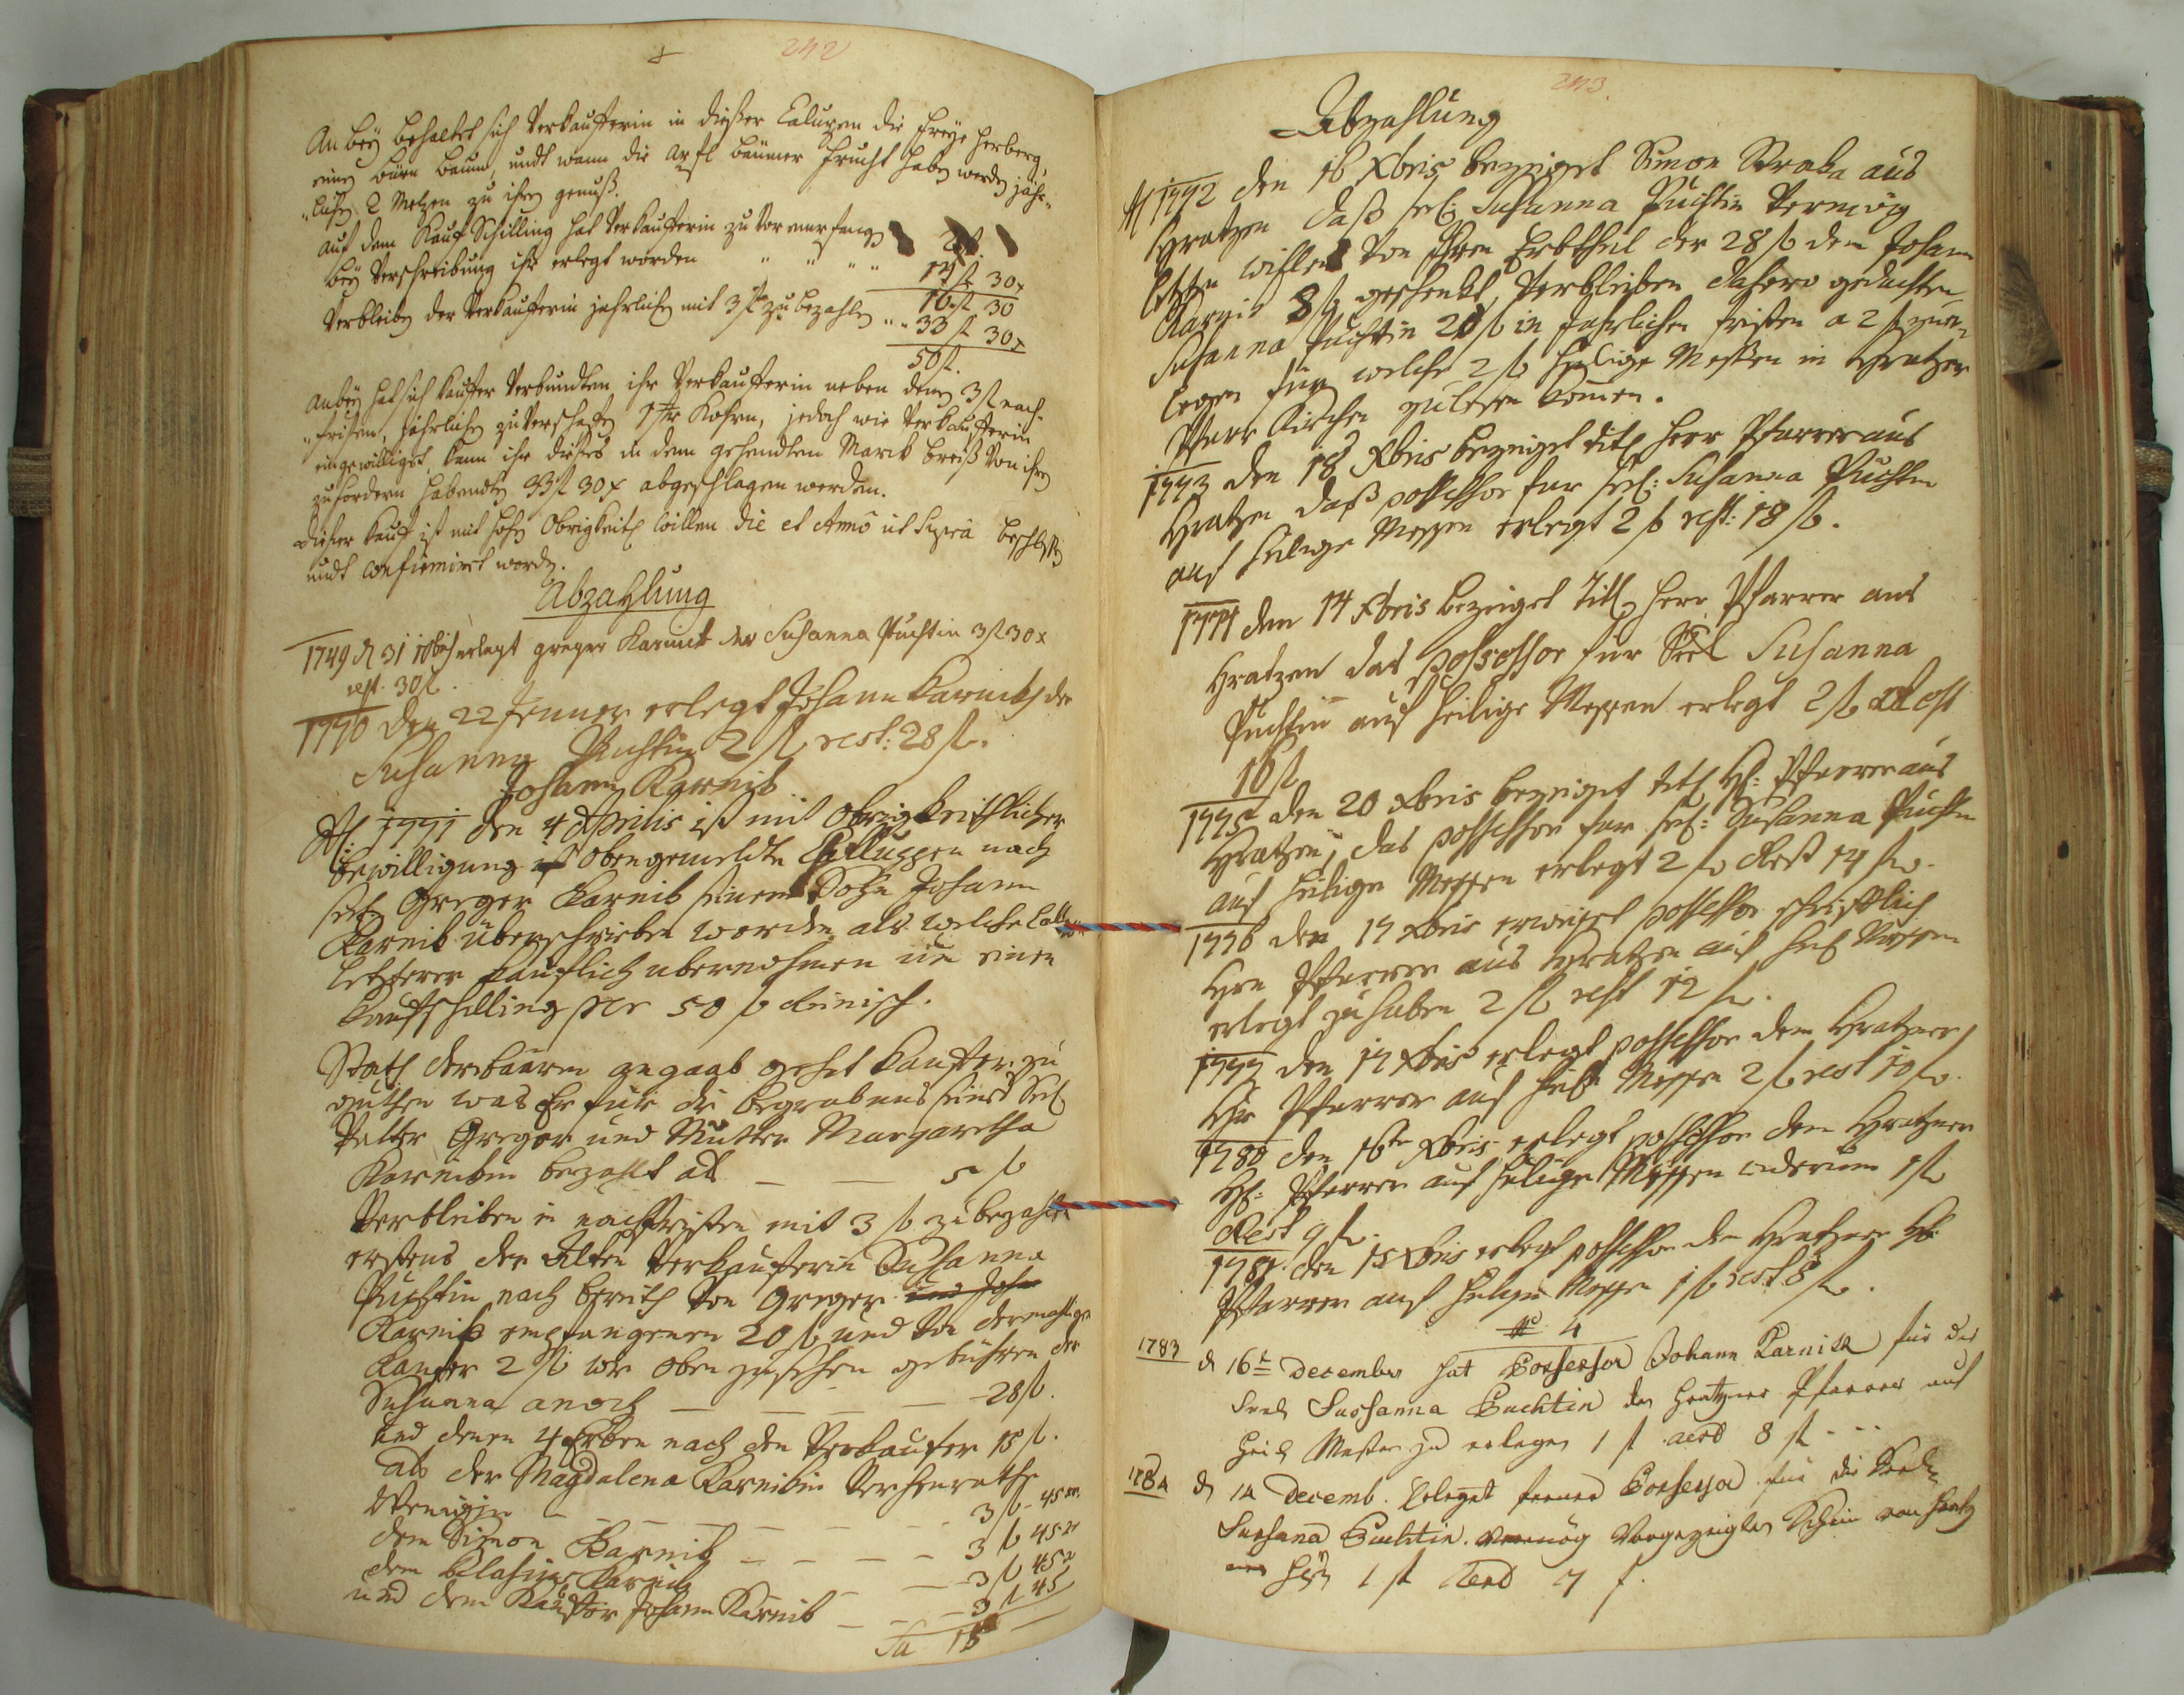 242
An bey behaltet sich Verkaufferin in dießer Caluppen die freye Herberg,
einen bürn baum, undt wann die Apfl baumer frucht haben werden jähr-
lichen 2 Metzen zu ihren genuß.
auf dem Kauf Schilling hat Verkaufferin zu Vor
bey Verschreibung ihr erlegt worden 14 fl 30 x
16 fl 30
Verbleiben der Verkaufferin jahrlichen mit 3 fl zu bezahlen 33 fl 30 x
50 fl.
anbey hat sich Kauffer Verbundten ihr Verkaufferin neben denen 3 fl nach-
fristen, jährlichen zu Verschaffen 1 Korn, jedoch wie Verkaufferin
eingewilliget, kann ihr dießes in dem gehendten Marck Preiß Von ihren
zufordern habendten 33 fl 30 x abgeschlagen werden.
dießer Kauf ist mit hohen Obrigkeitl Willen die et Anno ut Supra beschlossen
undt confirmiret worden.
Abzahlung
1749 d 31 xbris erlegt greger Karnick der Susanna Puchtin 3 fl 30 x
rest. 30 fl.
1770 den 22 Jenner erlegt Johann Karnick der
Susanna Puchtin 2 fl rest: 28 fl.
Johann Karnik
A 1771 den 4 Aprilis ist mit obrigkeithlicher
bewilligung obengemeldte Challuppen nach
seel Greger Karnik seinem Sohn Johann
Karnik überschrieben worden als welche
letzterer kauflich ubernohmen um einen
Kaufschilling per 50 fl Reinisch.
Statt der baaren angaab gehet Kauffer zu
guthen was Er für die begrabnus seines Seel
Vatter Gregor und Mutter Margaretha
Karnikin bezahlt als — — 5 fl
Verbleiben in nachfristen mit 3 fl zu bezahlen
erstens der Alten Verkaufferin Susanna
Puchtin nach Von Greger
Karnik empfangenen 20 fl und Von dermahligen
Kaufer 2 fl wie oben zusehen gebühren der
Susanna anoch — — — 28 fl.
und denen 4 Erben nach den Verkaufer 15 fl.
als der Magdalena Karnikin Verheurathe
3 fl - 45 xr.
dem Simon Karnik — — — 3 fl 45 x
dem Blasius Karnik — — 3 fl 45 x
und dem Kaufer Johann Karnik — — 3 fl 45
Sa 15
243.
Abzahlung
A 1772 den 16 Xbris bezeiget Simon Straka aus
Gratzen daß seel: Susanna Puchtin Vermög
letzten willen Von Ihren Erbtheil der 28 fl dem Johann
Karnik 8 fl geschenkt, Verbleiben dahero gedachten
Susanna Puchtin 20 fl in Jahrlichen fristen a 2 fl zuer-
legen für welche 2 fl heilige Messen in Gratzer
Pfarr Kirchen zulesen komen.
1773 den 18 Xbris bezeiget titl Herr Pfarrer aus
Gratzen daß possessor fur seel: Susanna Puchtin
auf heilige Messen erlegt 2 fl rest: 18 fl.
1774 dem 14 Xbris bezeiget Titl Herr Pfarrer aus
Gratzen das possessor fur Seel Susanna
Puchtin auf heilige Messen erlegt 2 fl Rest
16 fl
1775 den 20 Xbris bezeiget titl H: Pfarrer aus
Gratzen, das possessor fur seel: Susanna Puchtin
auf heilige Messen erlegt 2 fl Rest 14 fl.
1776 den 17 Xbris erweiset possessor schriftlich
Hrn Pfarrer aus Gratzen auf heil Messen
erlegt zuhaben 2 fl rest 12 fl.
1777 den 17 Xbris erlegt possessor dem Gratzner
Hr Pfarrer auf heil Messen 2 fl rest 10 fl.
1780 den 16te Xbris erlegt possessor dem Gratzner
H: Pfarrer auf heilige Messen widerum 1 fl
Rest 9 fl.
1781 den 15 Xbris erlegt possessor dem Gratzner H:
Pfarrer auf heilige Messen 1 fl rest 8 fl.
N 4
1783 d 16t December hat Possessor Johann Karnick für der
Seel Sussanna Puchtin den Gratzner Pfarrer auf
Heil Messen zu erlegen 1 fl rest 8 fl
1784 d 14 Decemb. Erleget ferner Possessor für die Seel
Susana Puchtin. Vermög Vorgezeigten Schein von
1 fl Rest 7 f.